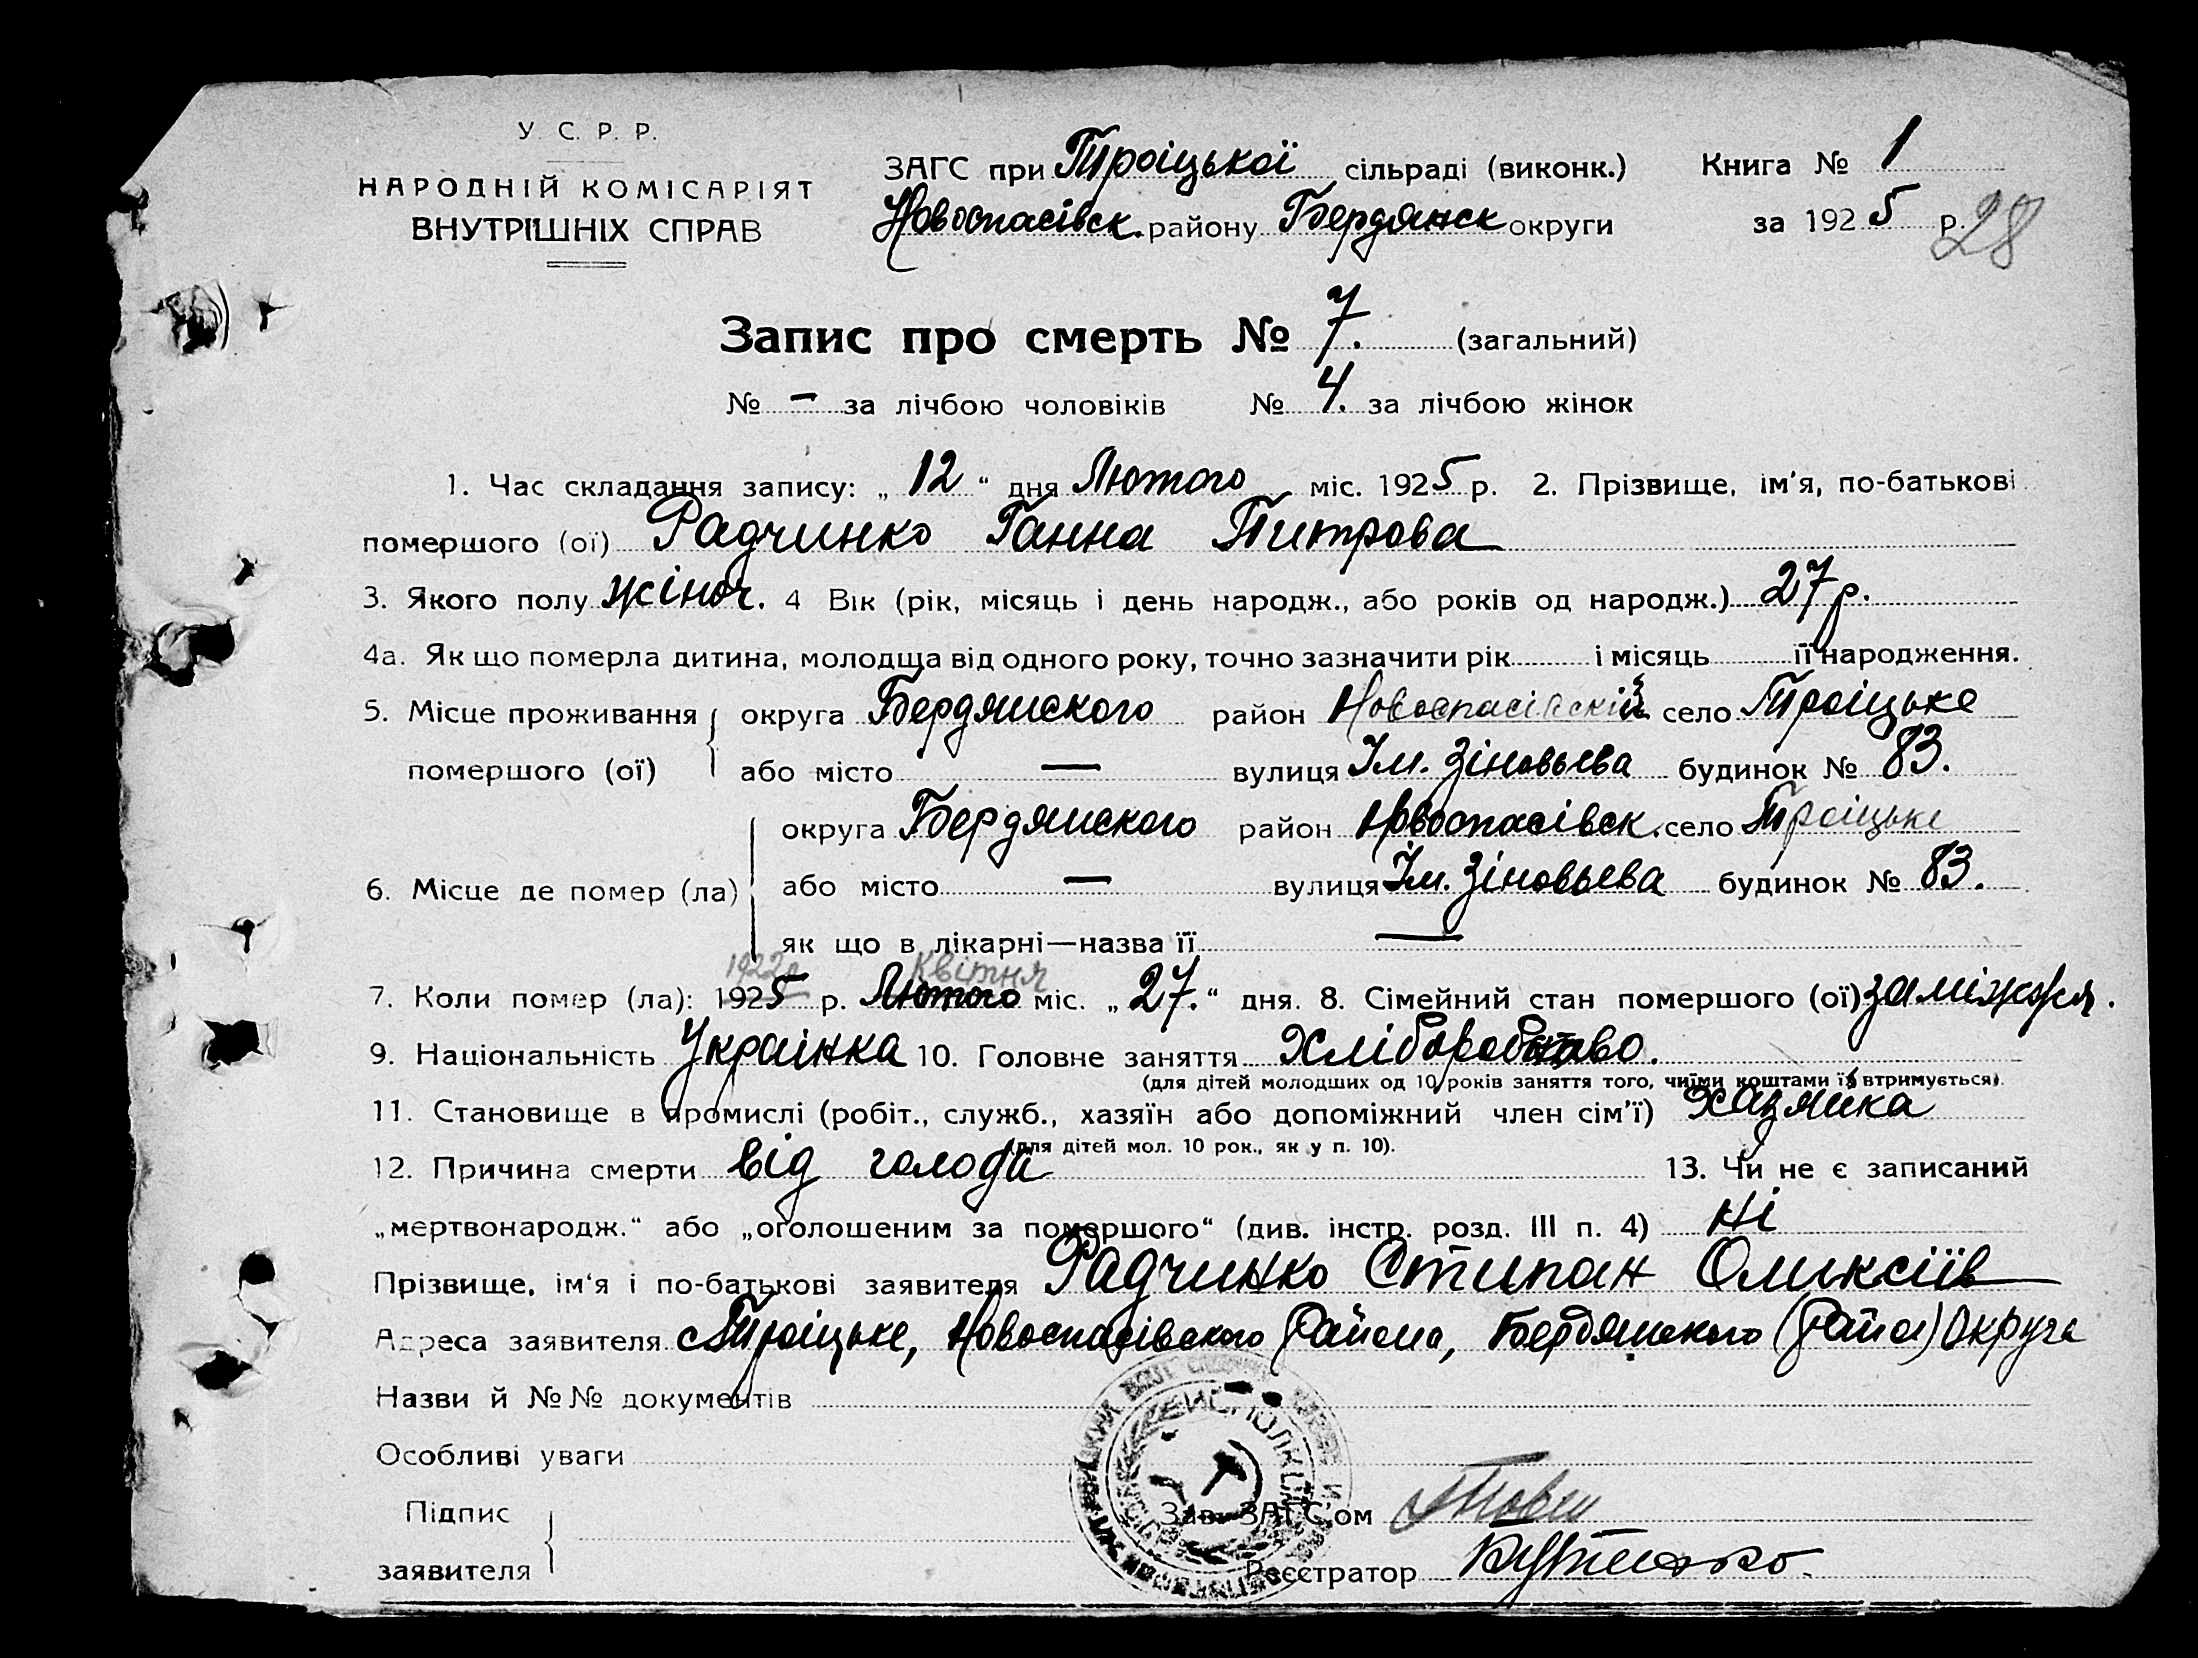 У. С. Р. Р.
НАРОДНІЙ КОМІСАРІЯТ
ВНУТРІШНІХ СПРАВ
ЗАГС при Троіцькоі сільраді (виконк.) Книга № 1
Новоспасівск. району Бердянск округи за 1925 р. 28
Запис про смерть № 7. (загальний)
№ — за лічбою чоловіків № 4. за лічбою жінок
1. Час складання запису: „12“ дня Лютого міс. 1925 р. 2. Прізвище, ім'я, по-батькові
помершого (ої) Радчинко Ганна Питрова
3. Якого полу жіноч. 4 Вік (рік, місяць і день народж., або років од народж.) 27 р.
4а. Як що померла дитина, молодща від одного року, точно зазначити рік і місяць її народження.
5. Місце проживання округа Бердянского район Новоспасівский село Троіцьке
помершого (ої) або місто — вулиця Ім. Зіновьева будинок № 83.
округа Бердянского район Новоспасівск. село Троіцьке
6. Місце де помер (ла) або місто — вулиця Ім. Зіновьева будинок № 83.
як що в лікарні—назва її —
1922р Квітня
7. Коли помер (ла): 1925 р. Лютого міс. „27.“ дня. 8. Сімейний стан помершого (ої) заміжня.
9. Національність Украінка 10. Головне заняття Хліборобство.
(для дітей молодших од 10 років заняття того, чиїми коштами їх втримується).
11. Становище в промислі (робіт., служб., хазяїн або допоміжний член сім'ї) Хазяика
(для дітей мол. 10 рок., як у п. 10).
12. Причина смерти від голода 13. Чи не є записаний
„мертвонародж.“ або „оголошеним за помершого“ (див. інстр. розд. III п. 4) Ні
Прізвище, ім'я і по-батькові заявителя Радчинко Стипан Оликсіів
Адреса заявителя с Троіцьке, Новоспасівского Района, Бердянского (Райо) Округа
Назви й №№ документів
Особливі уваги
Підпис
Зав. ЗАГС'ом
заявителя
Реєстратор